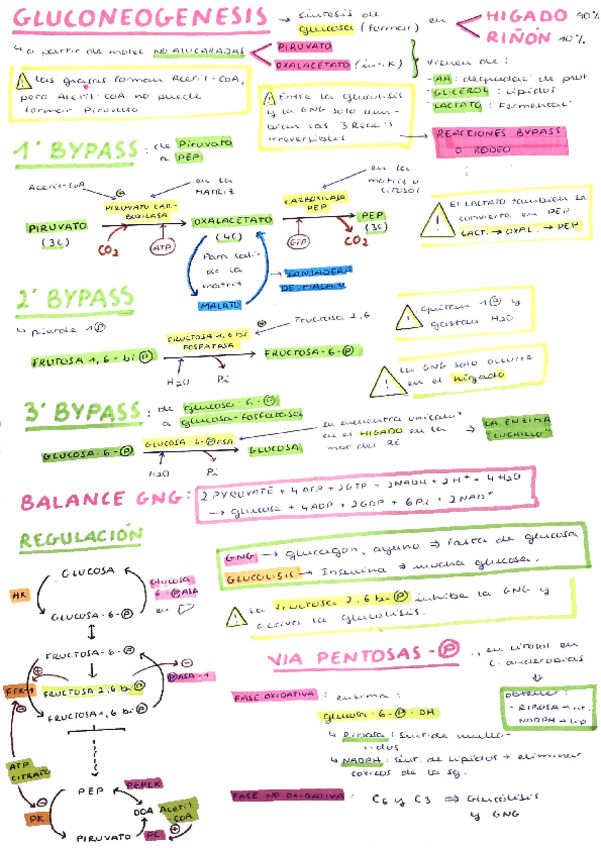 GLUCONEOGENESIS → síntesis de glucosa (formar) en HIGADO 90%
RIÑÓN 10%
↳ a partir de molec NO AZUCARADAS PIRUVATO
OXALACETATO (in. K)
vienen de:
- AA: degradac de prot
- GLICEROL: Lípidos
- LACTATO: Fermentac
Las grasas forman Acetil-CoA,
pero Acetil-CoA no puede
formar Piruvato
Entre la glucolisis
y la GNG solo cambian las 3 Reacs
irreversibles
REACCIONES BYPASS
O RODEO
1' BYPASS: de Piruvato
a PEP
Acetil-CoA
en la
MATRIZ
en la
matriz o
citosol
PIRUVATO CARBOXILASA
CARBOXILASA
PEP
PIRUVATO
(3C)
OXALACETATO
(4C)
PEP
(3C)
CO2
ATP
GTP
CO2
Para salir
de la
matriz
LANZADERA
DE MALATO
MALATO
El LACTATO también se
convierte en PEP
LACT. → OXAL. → PEP
2' BYPASS
↳ pierde 1 P
FRUCTOSA 1,6 bi
FOSFATASA
Fructosa 2,6
FRUTOSA 1,6-bi P
FRUCTOSA-6-P
H2O
Pi
Quitan 1 P y
gastan H2O
La GNG solo ocurre
en el hígado
3' BYPASS: de glucosa-6-P
a glucosa-fosfatasa
GLUCOSA-6-P
GLUCOSA-6-PASA
GLUCOSA
H2O
Pi
se encuentra únicam
en el HIGADO en la
mbr del RE
LA ENZIMA
"CUCHILLO"
BALANCE GNG: 2 PYRUVATE + 4ATP + 2GTP + 2NADH + 2H+ + 4H2O
→ glucosa + 4ADP + 2GDP + 6Pi + 2NAD+
REGULACIÓN
GNG → glucagon, ayuno ⇒ falta de glucosa
GLUCOLISIS → Insulina ⇒ mucha glucosa.
La fructosa 2,6 bi P inhibe la GNG y
activa la glucolisis.
GLUCOSA
HK
Glucosa
6-PASA
en
GLUCOSA-6-P
FRUCTOSA-6-P
PFK-1
FRUCTOSA 2,6 bi P
PASA-1
FRUCTOSA 1,6 bi P
ATP
CITRATO
PEP
PEPCK
OOA
Acetil-CoA
PK
PIRUVATO
PC
VIA PENTOSAS-P, en citosol en
FASE OXIDATIVA: enzima:
glucosa-6-P-DH
↳ Ribosa: sínt. de nucleotidos
↳ NADPH: sínt. de lípidos + eliminar
de la sg.
obtiene:
- RIBOSA → nt.
- NADPH → lip
FASE NO OXIDATIVA: C6 y C3 ⇒ Glucólisis
y GNG